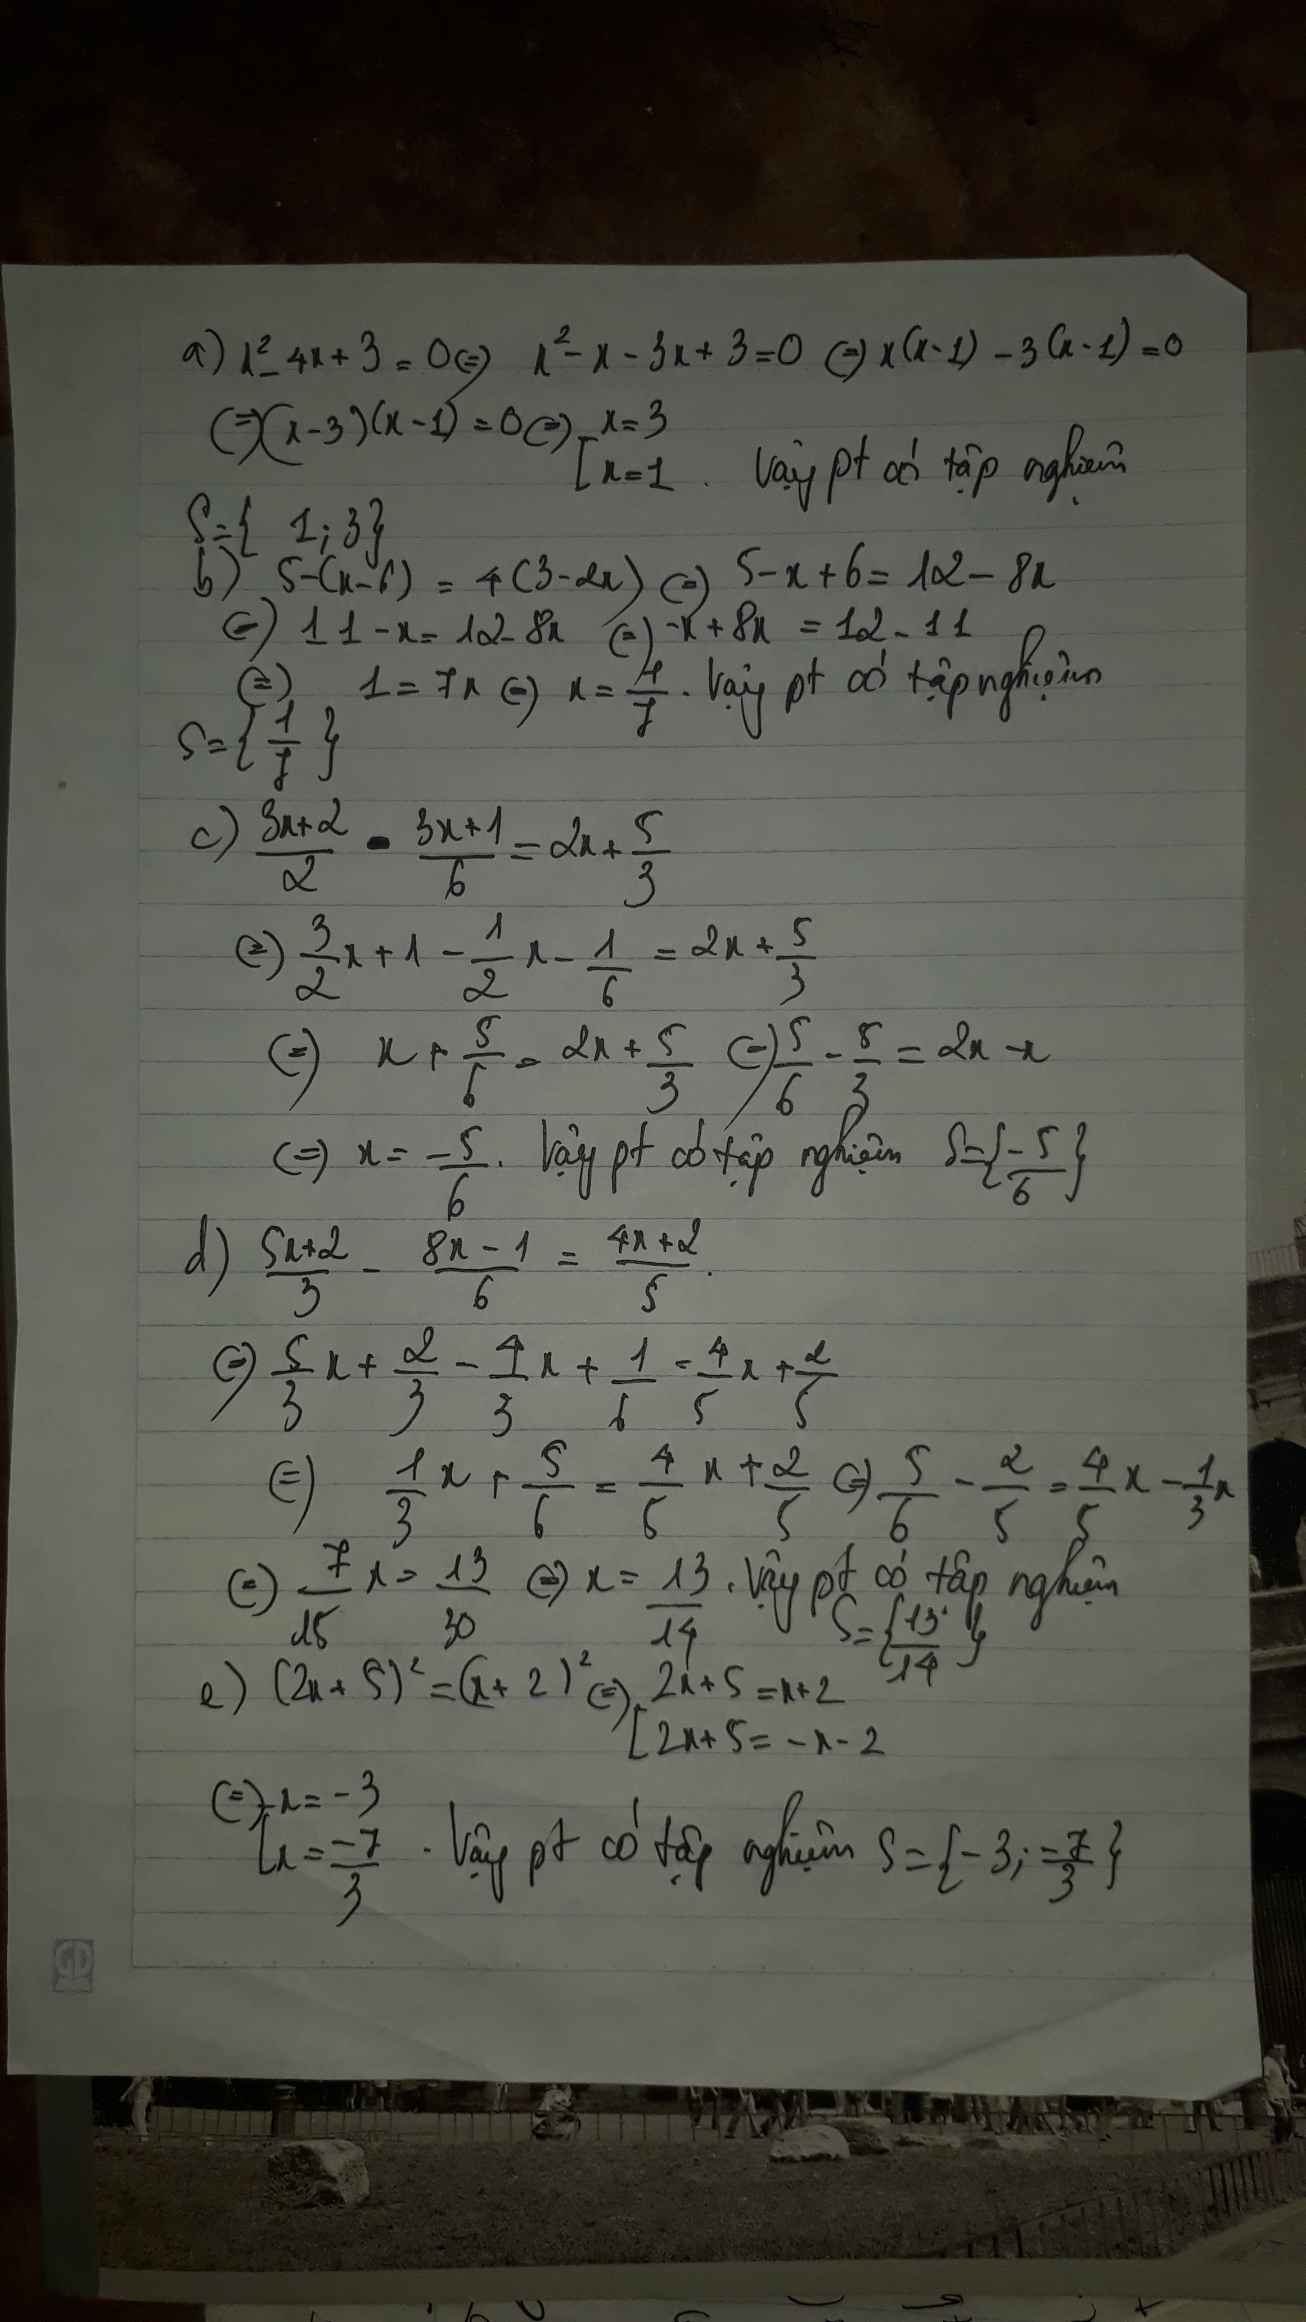 a) x² - 4x + 3 = 0 (=) x² - x - 3x + 3 = 0 (=) x(x-1) - 3(x-1) = 0
(=) (x-3)(x-1) = 0 (=) [ x = 3
[ x = 1 . Vậy pt có tập nghiệm
S = { 1; 3}
b) 5-(x-6) = 4(3-2x) (=) 5-x+6 = 12-8x
(=) 11-x = 12-8x (=) -x+8x = 12-11
(=) 1 = 7x (=) x = 1/7 . Vậy pt có tập nghiệm
S = { 1/7 }
c) (3x+2)/2 - (3x+1)/6 = 2x + 5/3
(=) 3/2 x + 1 - 1/2 x - 1/6 = 2x + 5/3
(=) x + 5/6 = 2x + 5/3 (=) 5/6 - 5/3 = 2x - x
(=) x = -5/6 . Vậy pt có tập nghiệm S = {-5/6}
d) (5x+2)/3 - (8x-1)/6 = (4x+2)/5 .
(=) 5/3 x + 2/3 - 4/3 x + 1/6 = 4/5 x + 2/5
(=) 1/3 x + 5/6 = 4/5 x + 2/5 (=) 5/6 - 2/5 = 4/5 x - 1/3 x
(=) 7/15 x = 13/30 (=) x = 13/14 . Vậy pt có tập nghiệm
S = {13/14}
e) (2x+5)² = (x+2)² (=) [ 2x+5 = x+2
[ 2x+5 = -x-2
(=) [ x = -3
[ x = -7/3 . Vậy pt có tập nghiệm S = {-3; -7/3}
GD